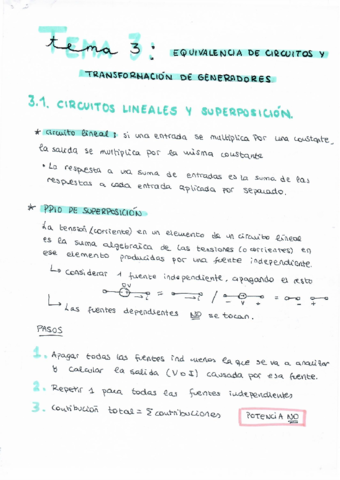 Tema 3: EQUIVALENCIA DE CIRCUITOS Y
TRANSFORMACIÓN DE GENERADORES
3.1. CIRCUITOS LINEALES Y SUPERPOSICIÓN
* circuito lineal: si una entrada se multiplica por una constante,
la salida se multiplica por la misma constante
• La respuesta a va suma de entradas es la suma de las
respuestas a cada entrada aplicada por separado.
* PPIO DE SUPERPOSICIÓN
La tensión (corriente) en un elemento de un circuito lineal
es la suma algebraica de las tensiones (o corrientes) en
ese elemento producidas por una fuente independiente.
↳ considerar 1 fuente independiente, apagando el resto
0V
i = i / + V - = + -
↳ Las fuentes dependientes NO se tocan.
PASOS
1. Apagar todas las fuentes ind menos la que se va a analizar
y calcular la salida (V o I) causada por esa fuente.
2. Repetir 1 para todas las fuentes independientes
3. contribución total = Σ contribuciones POTENCIA NO